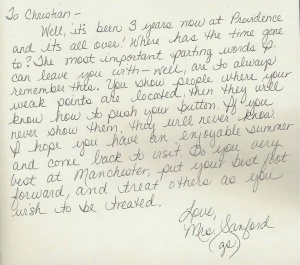 To Christian -
Well, it's been 3 years now at Providence
and it's all over! Where has the time gone
to? The most important parting words I
can leave you with - well, are to always
remember this. You show people where your
weak points are located, then they will
know how to push your button. If you
never show them, they will never know.
I hope you have an enjoyable summer
and come back to visit. Do your very
best at Manchester, put your best foot
forward, and treat others as you
wish to be treated.
Love,
Mrs. Sanford